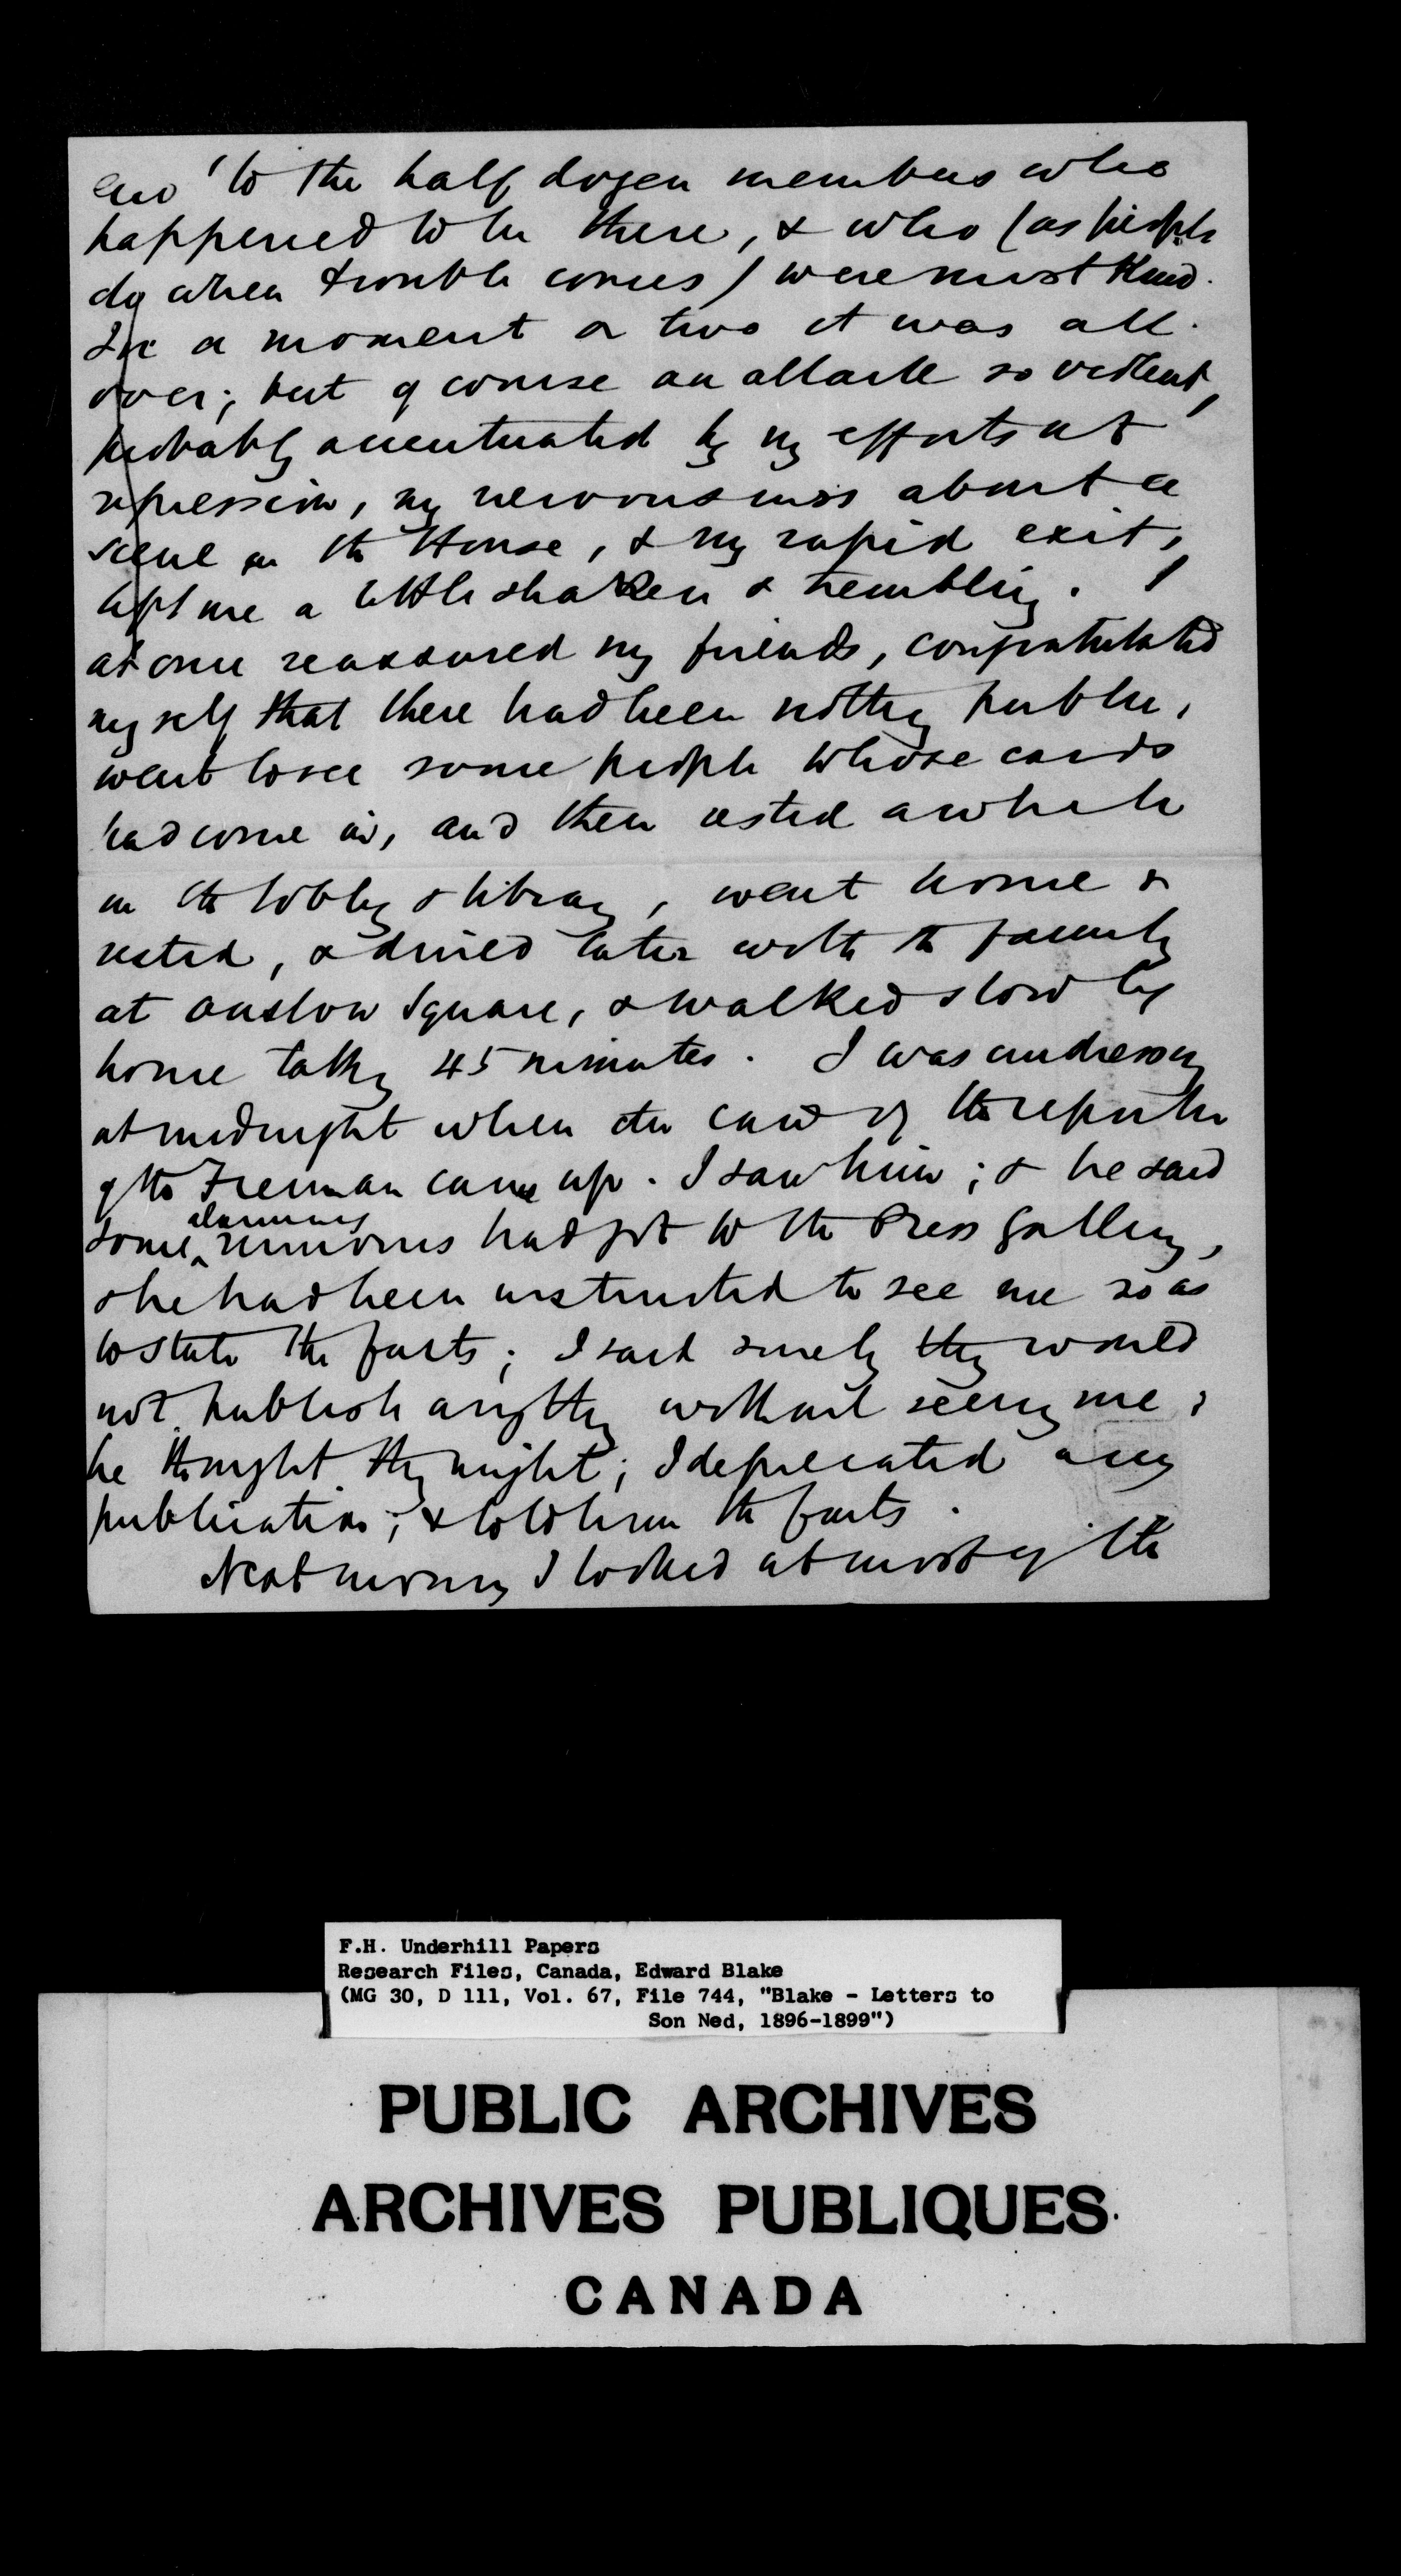 to the half dozen members who
happened to be there, & who (as people
do when trouble comes) were most kind.
In a moment or two it was all
over; but of course an attack so violent,
probably accentuated by my efforts at
repression, my nervousness about a
scene in the House, & my rapid exit,
left me a little shaken & trembling. I
at once reassured my friends, congratulated
myself that there had been nothing public,
went to see some people whose cards
had come in, and then rested awhile
in the lobby & library, went home &
rested, & dined later with the family
at Onslow Square, & walked slowly
home taking 45 minutes. I was undressing
at midnight when the card of the reporter
of the Freeman came up. I saw him; & he said
some alarming rumours had got to the Press Gallery,
& he had been instructed to see me so as
to state the facts; I said surely they would
not publish anything without seeing me;
he thought they might; I deprecated any
publication; & told him the facts.
Next morning I looked at most of the
F.H. Underhill Papers
Research Files, Canada, Edward Blake
(MG 30, D 111, Vol. 67, File 744, "Blake - Letters to
Son Ned, 1896-1899")
PUBLIC ARCHIVES
ARCHIVES PUBLIQUES
CANADA